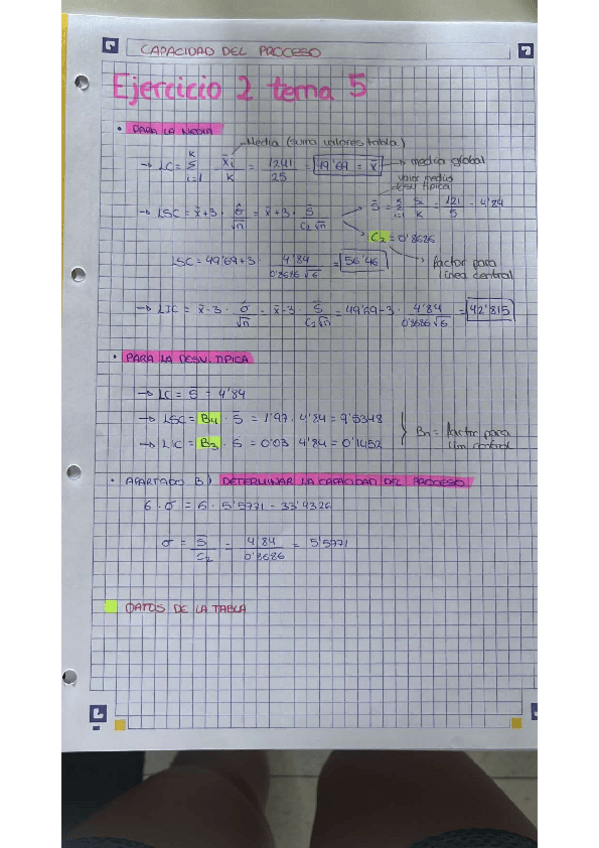 CAPACIDAD DEL PROCESO
Ejercicio 2 tema 5
• PARA LA MEDIA
Media (suma valores tabla)
→ LC = K Σ i=1 x̄i / K = 1241 / 25 = 49'69 = x̿ → media global
valor medio desv típica
→ LSC = x̿ + 3 · σ̂ / √n = x̿ + 3 · S̄ / C2√n
S̄ = Σ i=1 Si / K = 121 / 5 = 4'84
C2 = 0'8686
LSC = 49'69 + 3 · 4'84 / 0'8686√6 = 56'46
factor para línea central
→ LIC = x̿ - 3 · σ̂ / √n = x̿ - 3 · S̄ / C2√n = 49'69 - 3 · 4'84 / 0'8686√6 = 42'815
• PARA LA DESV. TIPICA
→ LC = S̄ = 4'84
→ LSC = B4 · S̄ = 1'97 · 4'84 = 9'5348
→ LIC = B3 · S̄ = 0'03 · 4'84 = 0'1452
Bn = factor para lim control
• APARTADO B) DETERMINAR LA CAPACIDAD DEL PROCESO
6 · σ = 6 · 5'5771 = 33'4326
σ = S̄ / C2 = 4'84 / 0'8686 = 5'5771
DATOS DE LA TABLA